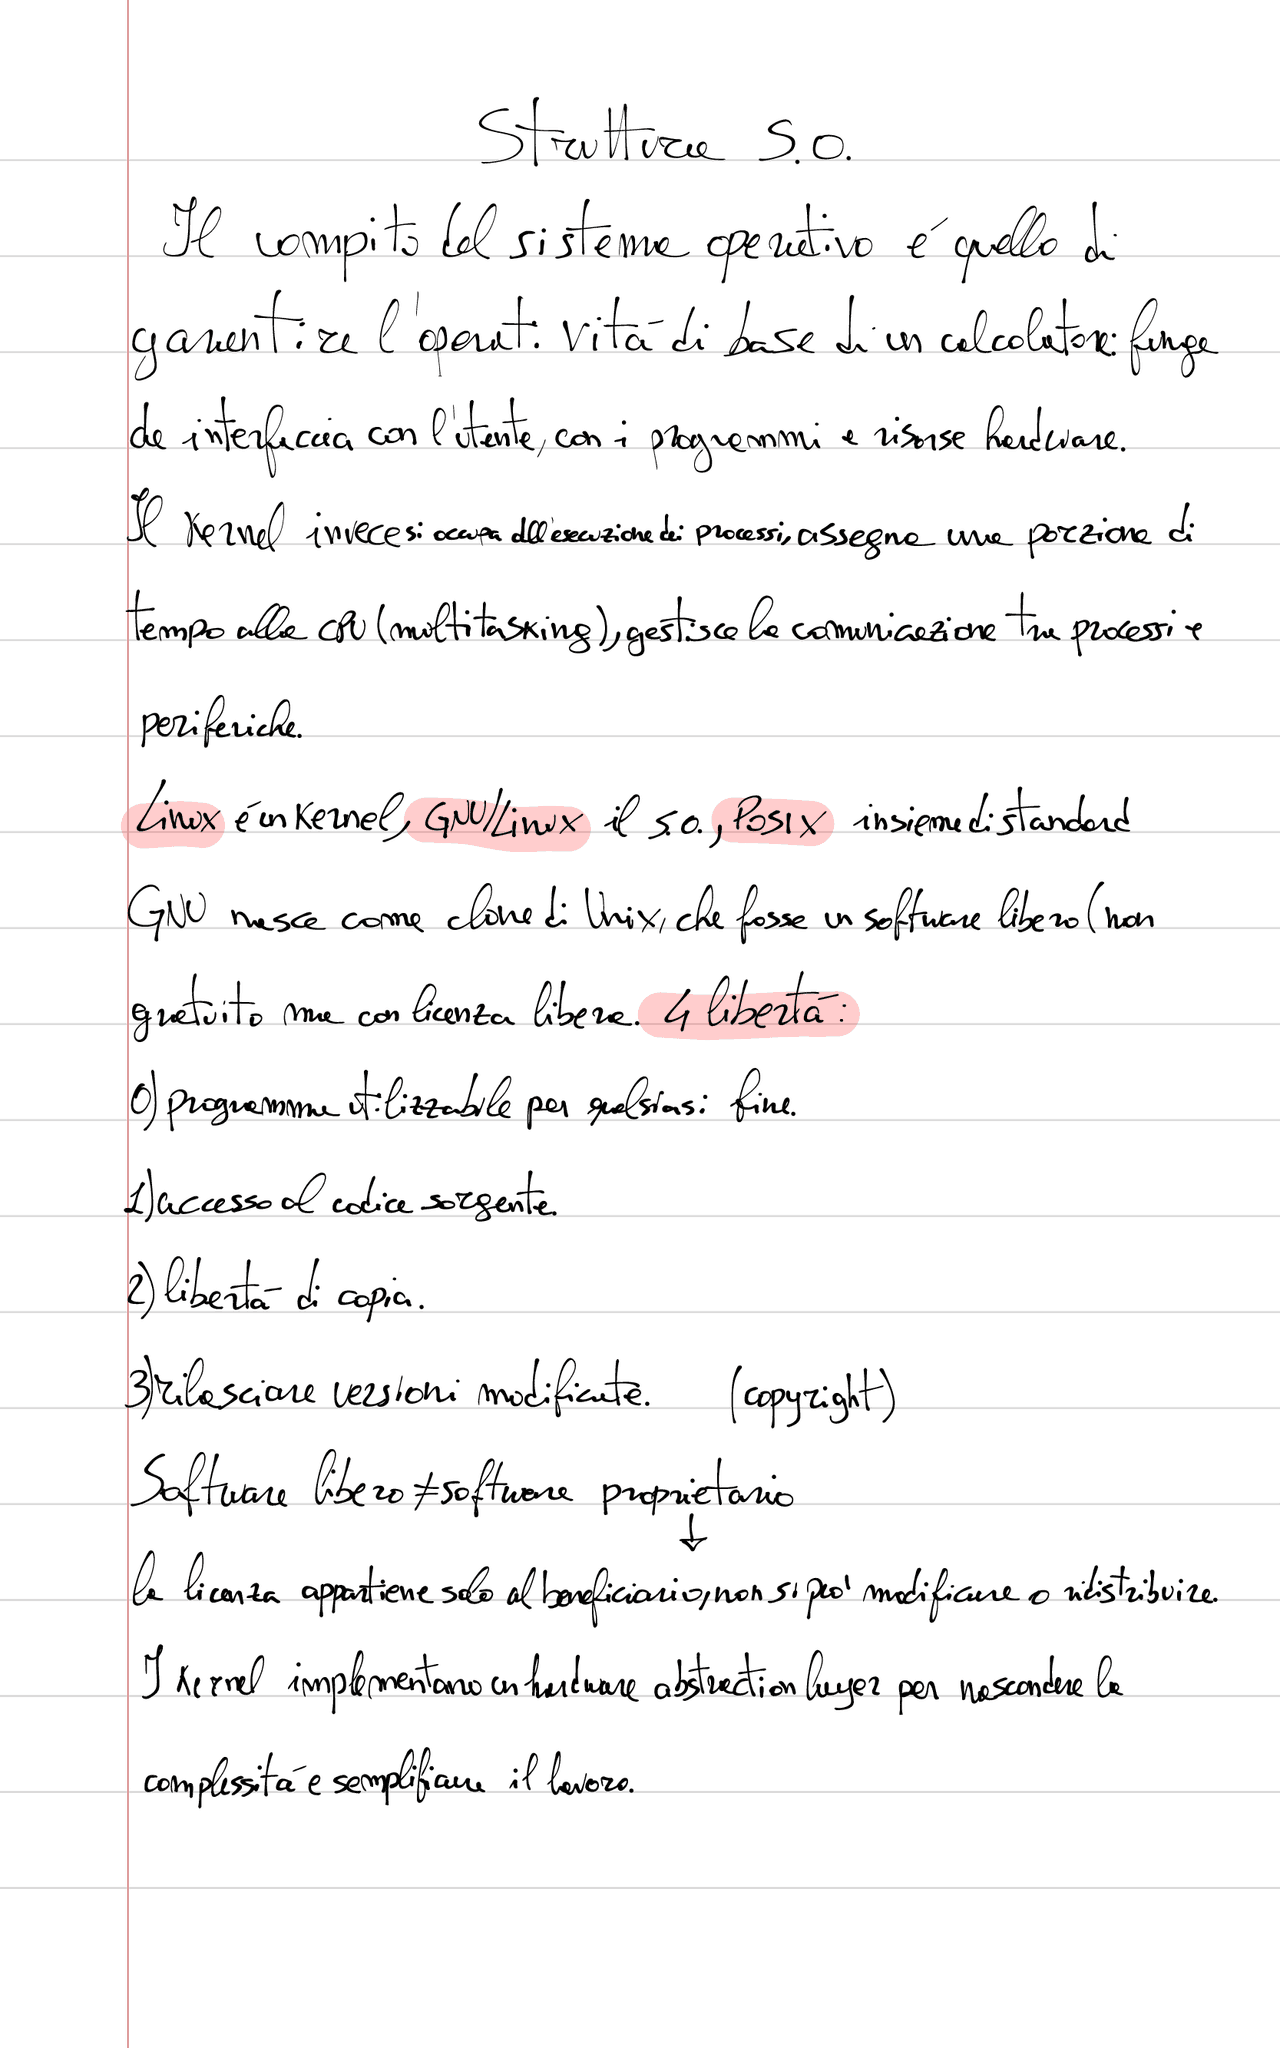 Struttura S.O.
Il compito del sistema operativo é quello di
garantire l'operatività di base di un calcolatore: funge
da interfaccia con l'utente, con i programmi e risorse hardware.
Il Kernel invece si occupa dell'esecuzione dei processi, assegna una porzione di
tempo alla CPU (multitasking), gestisce la comunicazione tra processi e
periferiche.
Linux é un Kernel, GNU/Linux il s.o., POSIX insieme di standard
GNU nasce come clone di Unix, che fosse un software libero (non
gratuito ma con licenza libera. 4 libertà:
0) programma utilizzabile per qualsiasi fine.
1) accesso al codice sorgente.
2) libertà di copia.
3) rilasciare versioni modificate. (copyright)
Software libero ≠ software proprietario
↓
la licenza appartiene solo al beneficiario, non si può modificare o ridistribuire.
I Kernel implementano un hardware abstraction layer per nascondere la
complessità e semplificare il lavoro.